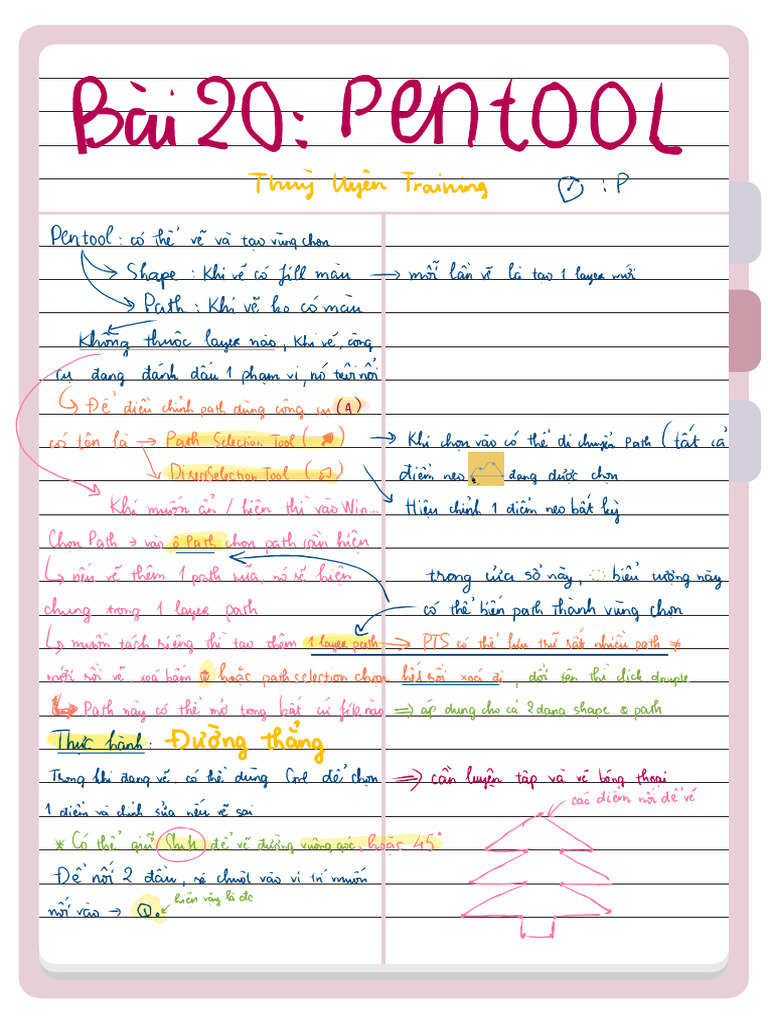 Bài 20: Pentool
Thuỳ Uyên Training
: P
Pentool : có thể vẽ và tạo vùng chọn
→ Shape : Khi vẽ có fill màu → mỗi lần vẽ là tạo 1 layer mới
→ Path : Khi vẽ ko có màu
Không thuộc layer nào, khi vẽ, công
cụ đang đánh dấu 1 phạm vi, nó trôi nổi
↳ Để điều chỉnh path dùng công cụ (A)
có tên là → Path Selection Tool ( ) → Khi chọn vào có thể di chuyển Path (tất cả
điểm neo đang được chọn
Direct Selection Tool ( )
Hiệu chỉnh 1 điểm neo bất kỳ
Khi muốn ẩn / hiện thì vào Win...
Chọn Path → vào ô Path chọn path cần hiện
↳ nếu vẽ thêm 1 path nữa, nó sẽ hiện
chung trong 1 layer path
trong cửa sổ này, biểu tượng này
có thể biến path thành vùng chọn
↳ muốn tách riêng thì tạo thêm 1 layer path → PTS có thể lưu trữ rất nhiều path *
mới rồi vẽ, xoá bấm hoặc path selection chọn hết rồi xoá đi, đổi tên thì click
↳ Path này có thể mở trong bất cứ file nào ⇒ áp dụng cho cả 2 dạng shape & path
Thực hành : Đường thẳng
Trong khi đang vẽ, có thể dùng Ctrl để chọn ⇒ cần luyện tập và vẽ bóng thoại
1 điểm và chỉnh sửa nếu vẽ sai
các điểm nối để vẽ
* Có thể giữ Shift để vẽ đường vuông góc, hoặc 45°
Để nối 2 đầu, rê chuột vào vị trí muốn
nối vào →
hiện vậy là đc